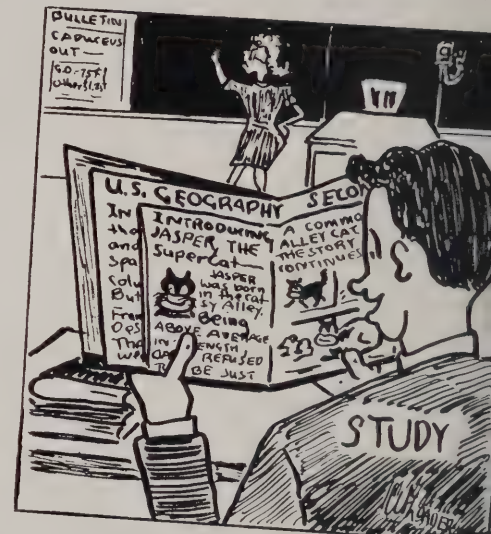 BULLETIN
CADUCEUS
OUT —
G.O.-75¢
U.S. GEOGRAPHY SECON
IN
tha
and
Spa
But
INTRODUCING
JASPER, THE
Supercat—
JASPER
was born
in the cat
sy Alley.
Being
ABOVE AVERAGE
IN ENGTH
REFUSED
BE JUST
A COMMO
ALLEY CAT
THE STORY
CONTINUES
STUDY